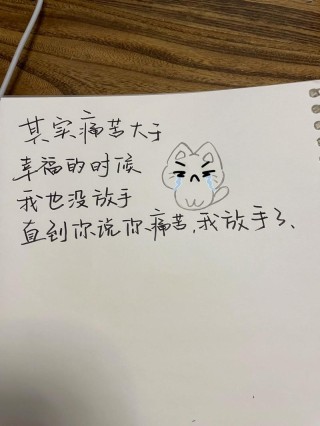 其实痛苦大于
幸福的时候
我也没放手
直到你说你痛苦,我放手了、